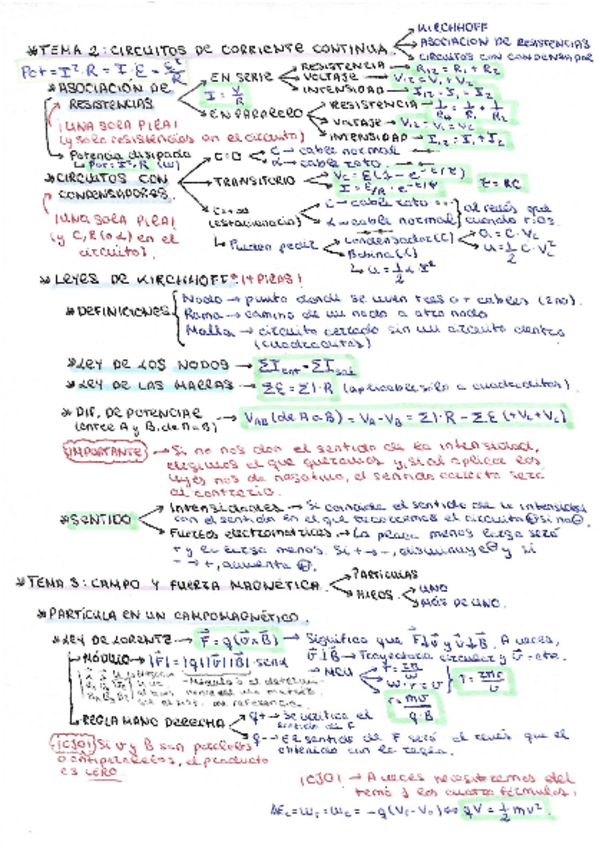 KIRCHHOFF
* TEMA 2: CIRCUITOS DE CORRIENTE CONTINUA
ASOCIACION DE RESISTENCIAS
CIRCUITOS CON CONDENSADOR
Pot = I²·R = I·ε = ε²/R
* ASOCIACIÓN DE RESISTENCIAS
EN SERIE
RESISTENCIA → R₁₂ = R₁ + R₂
VOLTAJE → V₁₂ = V₁ + V₂
INTENSIDAD → I₁₂ = I₁ = I₂
I = V/R
EN PARALELO
RESISTENCIA → 1/R₁₂ = 1/R₁ + 1/R₂
VOLTAJE → V₁₂ = V₁ = V₂
INTENSIDAD → I₁₂ = I₁ + I₂
¡UNA SOLA PILA!
(y solo resistencias en el circuito)
Potencia disipada
↳ Pot = I²·R (W)
* CIRCUITOS CON CONDENSADORES
C → cable normal
→ cable roto
TRANSITORIO
τ = RC
(estacionario)
C → cable roto
→ cable normal
al revés que
cuando t=0s
¡UNA SOLA PILA!
(y C, R (o L) en el
circuito)
↳ Pueden pedir
Condensador (C)
Q = C·V
U = 1/2 C·V²
Bobina (L)
* LEYES DE KIRCHHOFF (+ PILAS)
* DEFINICIONES
Nodo → punto donde se unen tres o + cables (2 no).
Rama → camino de un nodo a otro nodo
Malla → circuito cerrado sin un circuito dentro
(cuadraditos)
* LEY DE LOS NODOS → ΣI = ΣI
* LEY DE LAS MALLAS → Σε = ΣI·R (aplicable sólo a cuadraditos).
* DIF. DE POTENCIAL
(entre A y B, de A a B)
→ V_AB (de A a B) = V_A - V_B = ΣI·R - Σε (+V_C + V_C)
IMPORTANTE → Si no nos dan el sentido de la intensidad,
elegimos el que queramos y, si al aplicar las
leyes nos da negativo, el sentido correcto será
al contrario.
* SENTIDO
Intensidades → Si coincide el sentido de la intensidad
con el sentido en el que recorremos el circuito ⊕ si no ⊖.
Fuerzas electromotrices → La placa menos larga será
* TEMA 3: CAMPO Y FUERZA MAGNÉTICA
PARTÍCULAS
HILOS
UNO
MÁS DE UNO
* PARTÍCULA EN UN CAMPO MAGNÉTICO
* LEY DE LORENTZ → F = q(v∧B) → Significa que F⊥v y v⊥B. A veces,
v⊥B → Trayectoria circular y v = cte.
MÓDULO → |F| = |q||v||B| senα
→ MCU
T = 2πr/v
w·r = v
r = mv/q·B
REGLA MANO DERECHA
q+ → Se verifica el
sentido de F
q- → El sentido de F será al revés que el
obtenido con la regla.
¡OJO! Si v y B son paralelos
o antiparalelos, el producto
es CERO
¡OJO! → A veces necesitaremos del
tema 1 las cuatro fórmulas:
qV = 1/2 mv²